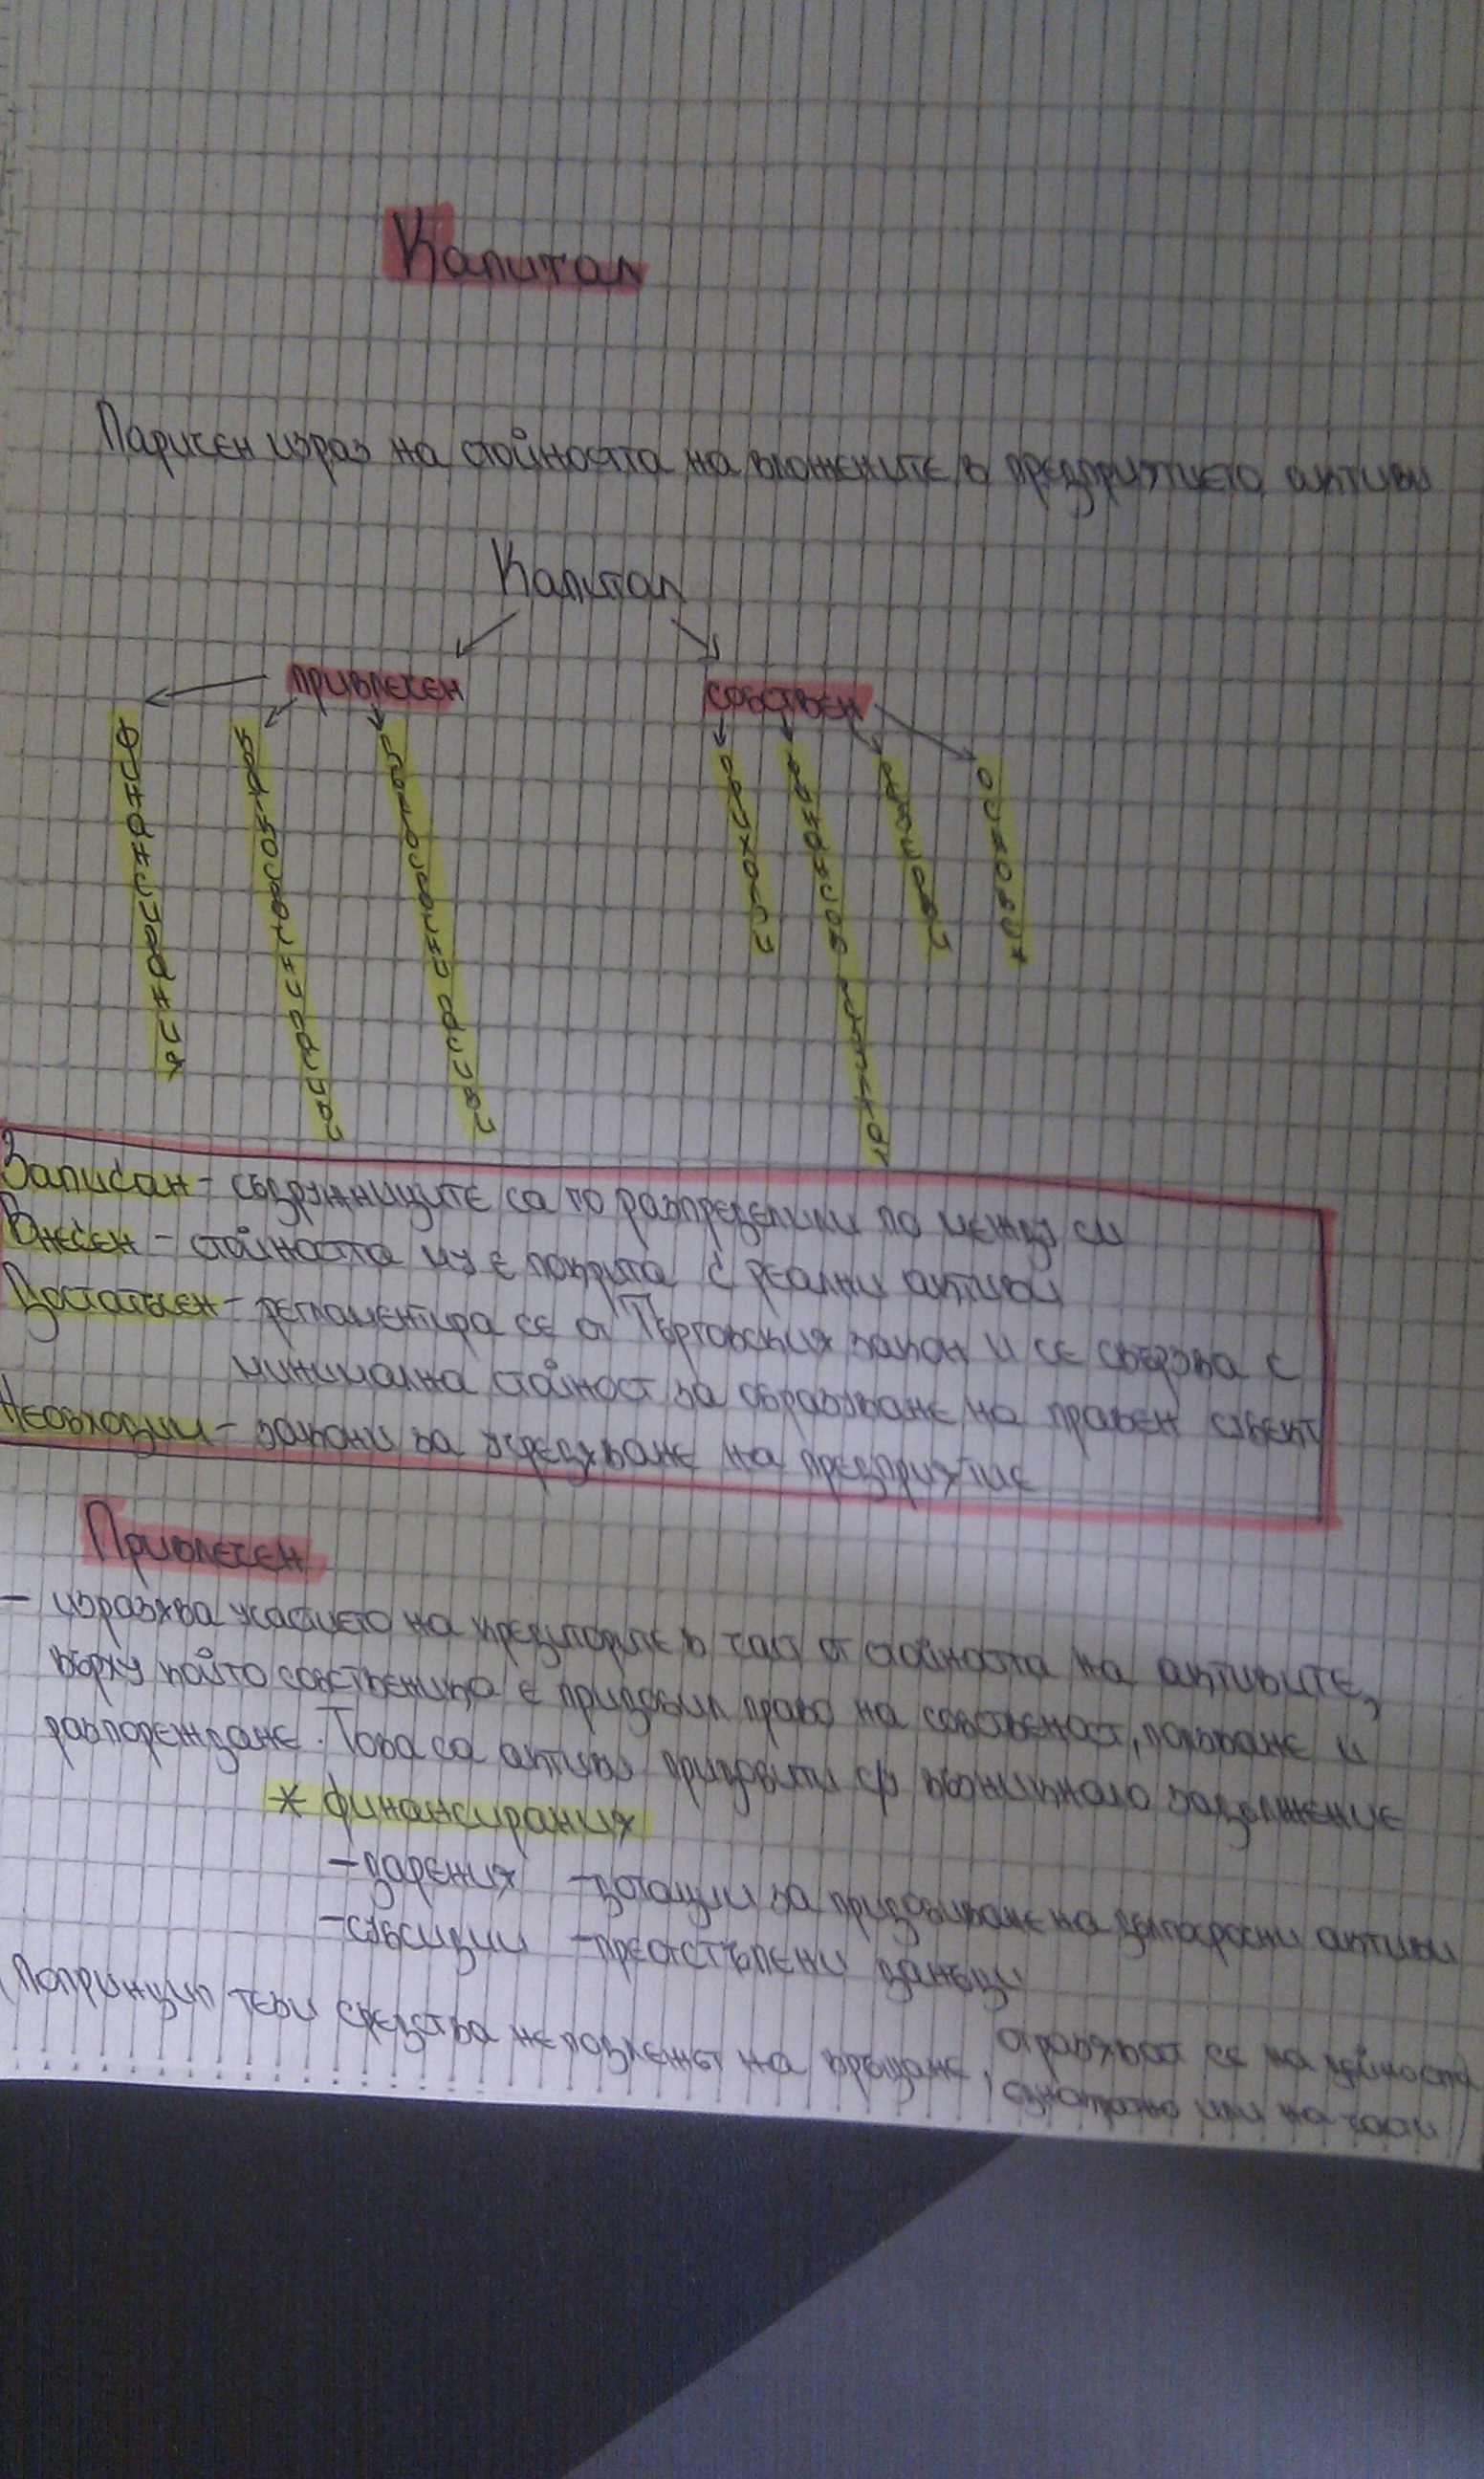 Капитал
Паричен израз на стойността на вложените в предприятието активи
Капитал
привлечен
собствен
финансирания
краткосрочни пасиви
дългосрочни пасиви
основен
резерви
финансов резултат
Записан - съдружниците са го разпределили по между си
Внесен - стойността му е покрита с реални активи
Достатъчен - регламентира се от Търговския закон и се свързва с
минимална стойност за образуване на правен субект
Необходим - закони за учредяване на предприятие
Привлечен
- изразява участието на кредиторите в част от стойността на активите,
върху който собственика е придобил право на собственост, ползване и
разпореждане. Това са активи придобити с/у възникнало задължение
* финансирания
- дарения - дотации за придобиване на дългосрочни активи
- субсидии - преотстъпени данъци
(Попринцип тези средства не подлежат на връщане, отразяват се на дейността
еднократно или на части)